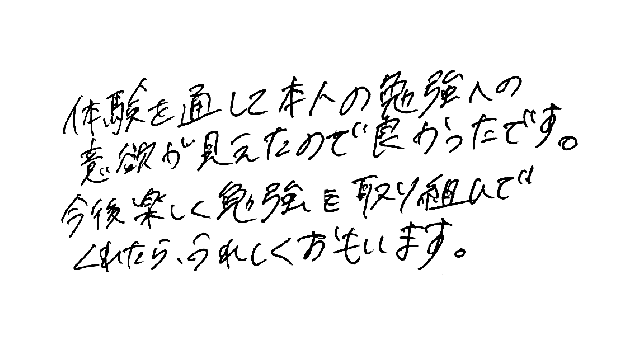 体験を通して本人の勉強への
意欲が見えたので良かったです。
今後楽しく勉強を取り組んで
くれたら、うれしくおもいます。